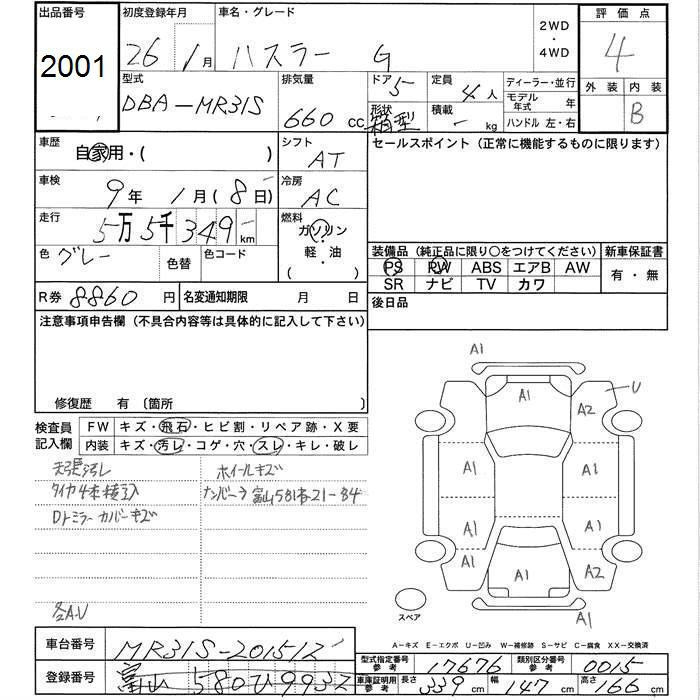 出品番号
2001
初度登録年月
26年 1月
車名・グレード
ハスラー G
2WD
・
4WD
評価点
4
外装 内装
B
型式
DBA-MR31S
排気量
660 cc
ドア 5
形状 箱型
定員 4人
積載 - kg
ディーラー・並行
モデル年式 年
ハンドル 左・右
車歴
自家用・( )
シフト
AT
セールスポイント (正常に機能するものに限ります)
車検
9年 1月(8日)
冷房
AC
走行
5万5千349 km
燃料
ガソリン
軽・油
( )
色 グレー
色替
色コード
装備品 (純正品に限り○をつけてください)
新車保証書
PS PW ABS エアB AW
SR ナビ TV カワ
有・無
R券 8860円
名変通知期限 月 日
後日品
注意事項申告欄 (不具合内容等は具体的に記入して下さい)
修復歴 有 〔箇所 〕
検査員
記入欄
FW キズ・飛石・ヒビ割・リペア跡・X要
内装 キズ・汚レ・コゲ・穴・スレ・キレ・破レ
天張汚レ
ホイールキズ
タイヤ4本
Dドミラーカバーキズ
富山581 21-84
各AU
A1
A1
A2
U
A1
A1
A1
A1
A1
A1
A2
A1
スペア
A-キズ E-エクボ U-凹み W-補修跡 S-サビ C-腐食 XX-交換済
車台番号
MR31S-201512
登録番号
富山 580 ひ 9932
型式指定番号
参考
17676
類別区分番号
参考
0015
車庫証明用
参考
長さ 339 cm 幅 147 cm 高さ 166 cm